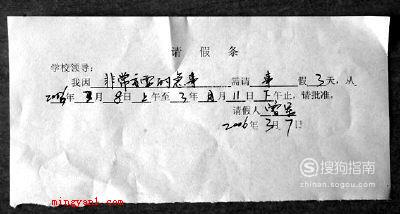 请假条
学校领导:
我因 非常重要的急事 需请 事 假 3 天,从
2006年 3 月 8 日 上 午至 3 年 月 11 日 下 午止,请批准。
请假人
2006年 3月 7日
搜狗指南
zhinan.sogou.com
mingyan1.com